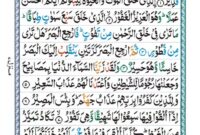 الَّذِي خَلَقَ الْمَوْتَ وَالْحَيٰوةَ لِيَبْلُوَكُمْ اَيُّكُمْ اَحْسَنُ
عَمَلًا ؕ وَهُوَ الْعَزِيزُ الْغَفُورُ ۙ الَّذِي خَلَقَ سَبْعَ سَمٰوٰتٍ طِبَاقًا ؕ
مَا تَرٰى فِي خَلْقِ الرَّحْمٰنِ مِنْ تَفٰوُتٍ ؕ فَارْجِعِ الْبَصَرَ ۙ هَلْ تَرٰى
مِنْ فُطُورٍ ثُمَّ ارْجِعِ الْبَصَرَ كَرَّتَيْنِ يَنْقَلِبْ اِلَيْكَ الْبَصَرُ
خَاسِئًا وَّهُوَ حَسِيرٌ وَلَقَدْ زَيَّنَّا السَّمَآءَ الدُّنْيَا بِمَصَابِيحَ
وَجَعَلْنٰهَا رُجُومًا لِّلشَّيٰطِينِ وَاَعْتَدْنَا لَهُمْ عَذَابَ السَّعِيرِ
وَلِلَّذِينَ كَفَرُوا بِرَبِّهِمْ عَذَابُ جَهَنَّمَ ؕ وَبِئْسَ الْمَصِيرُ